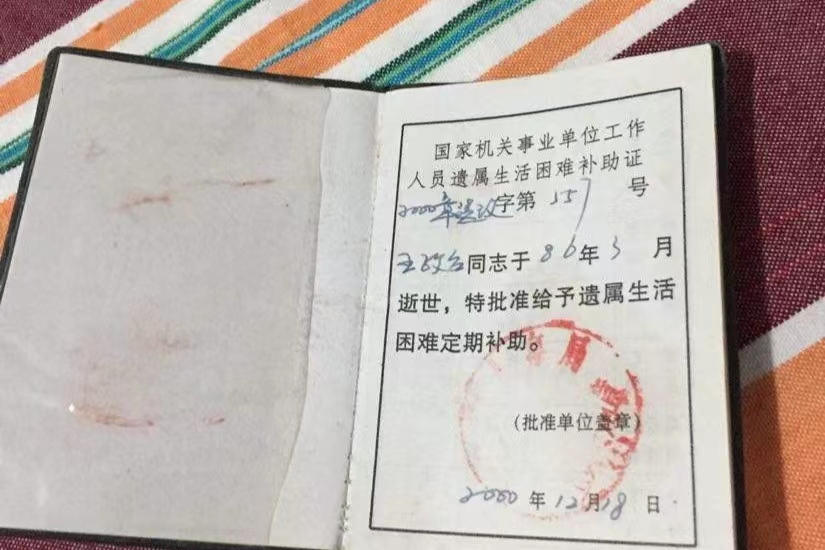 国家机关事业单位工作
人员遗属生活困难补助证
2000 字第 157 号
王政 同志于 86 年 3 月
逝世，特批准给予遗属生活
困难定期补助。
（批准单位盖章）
2000 年 12 月 18 日